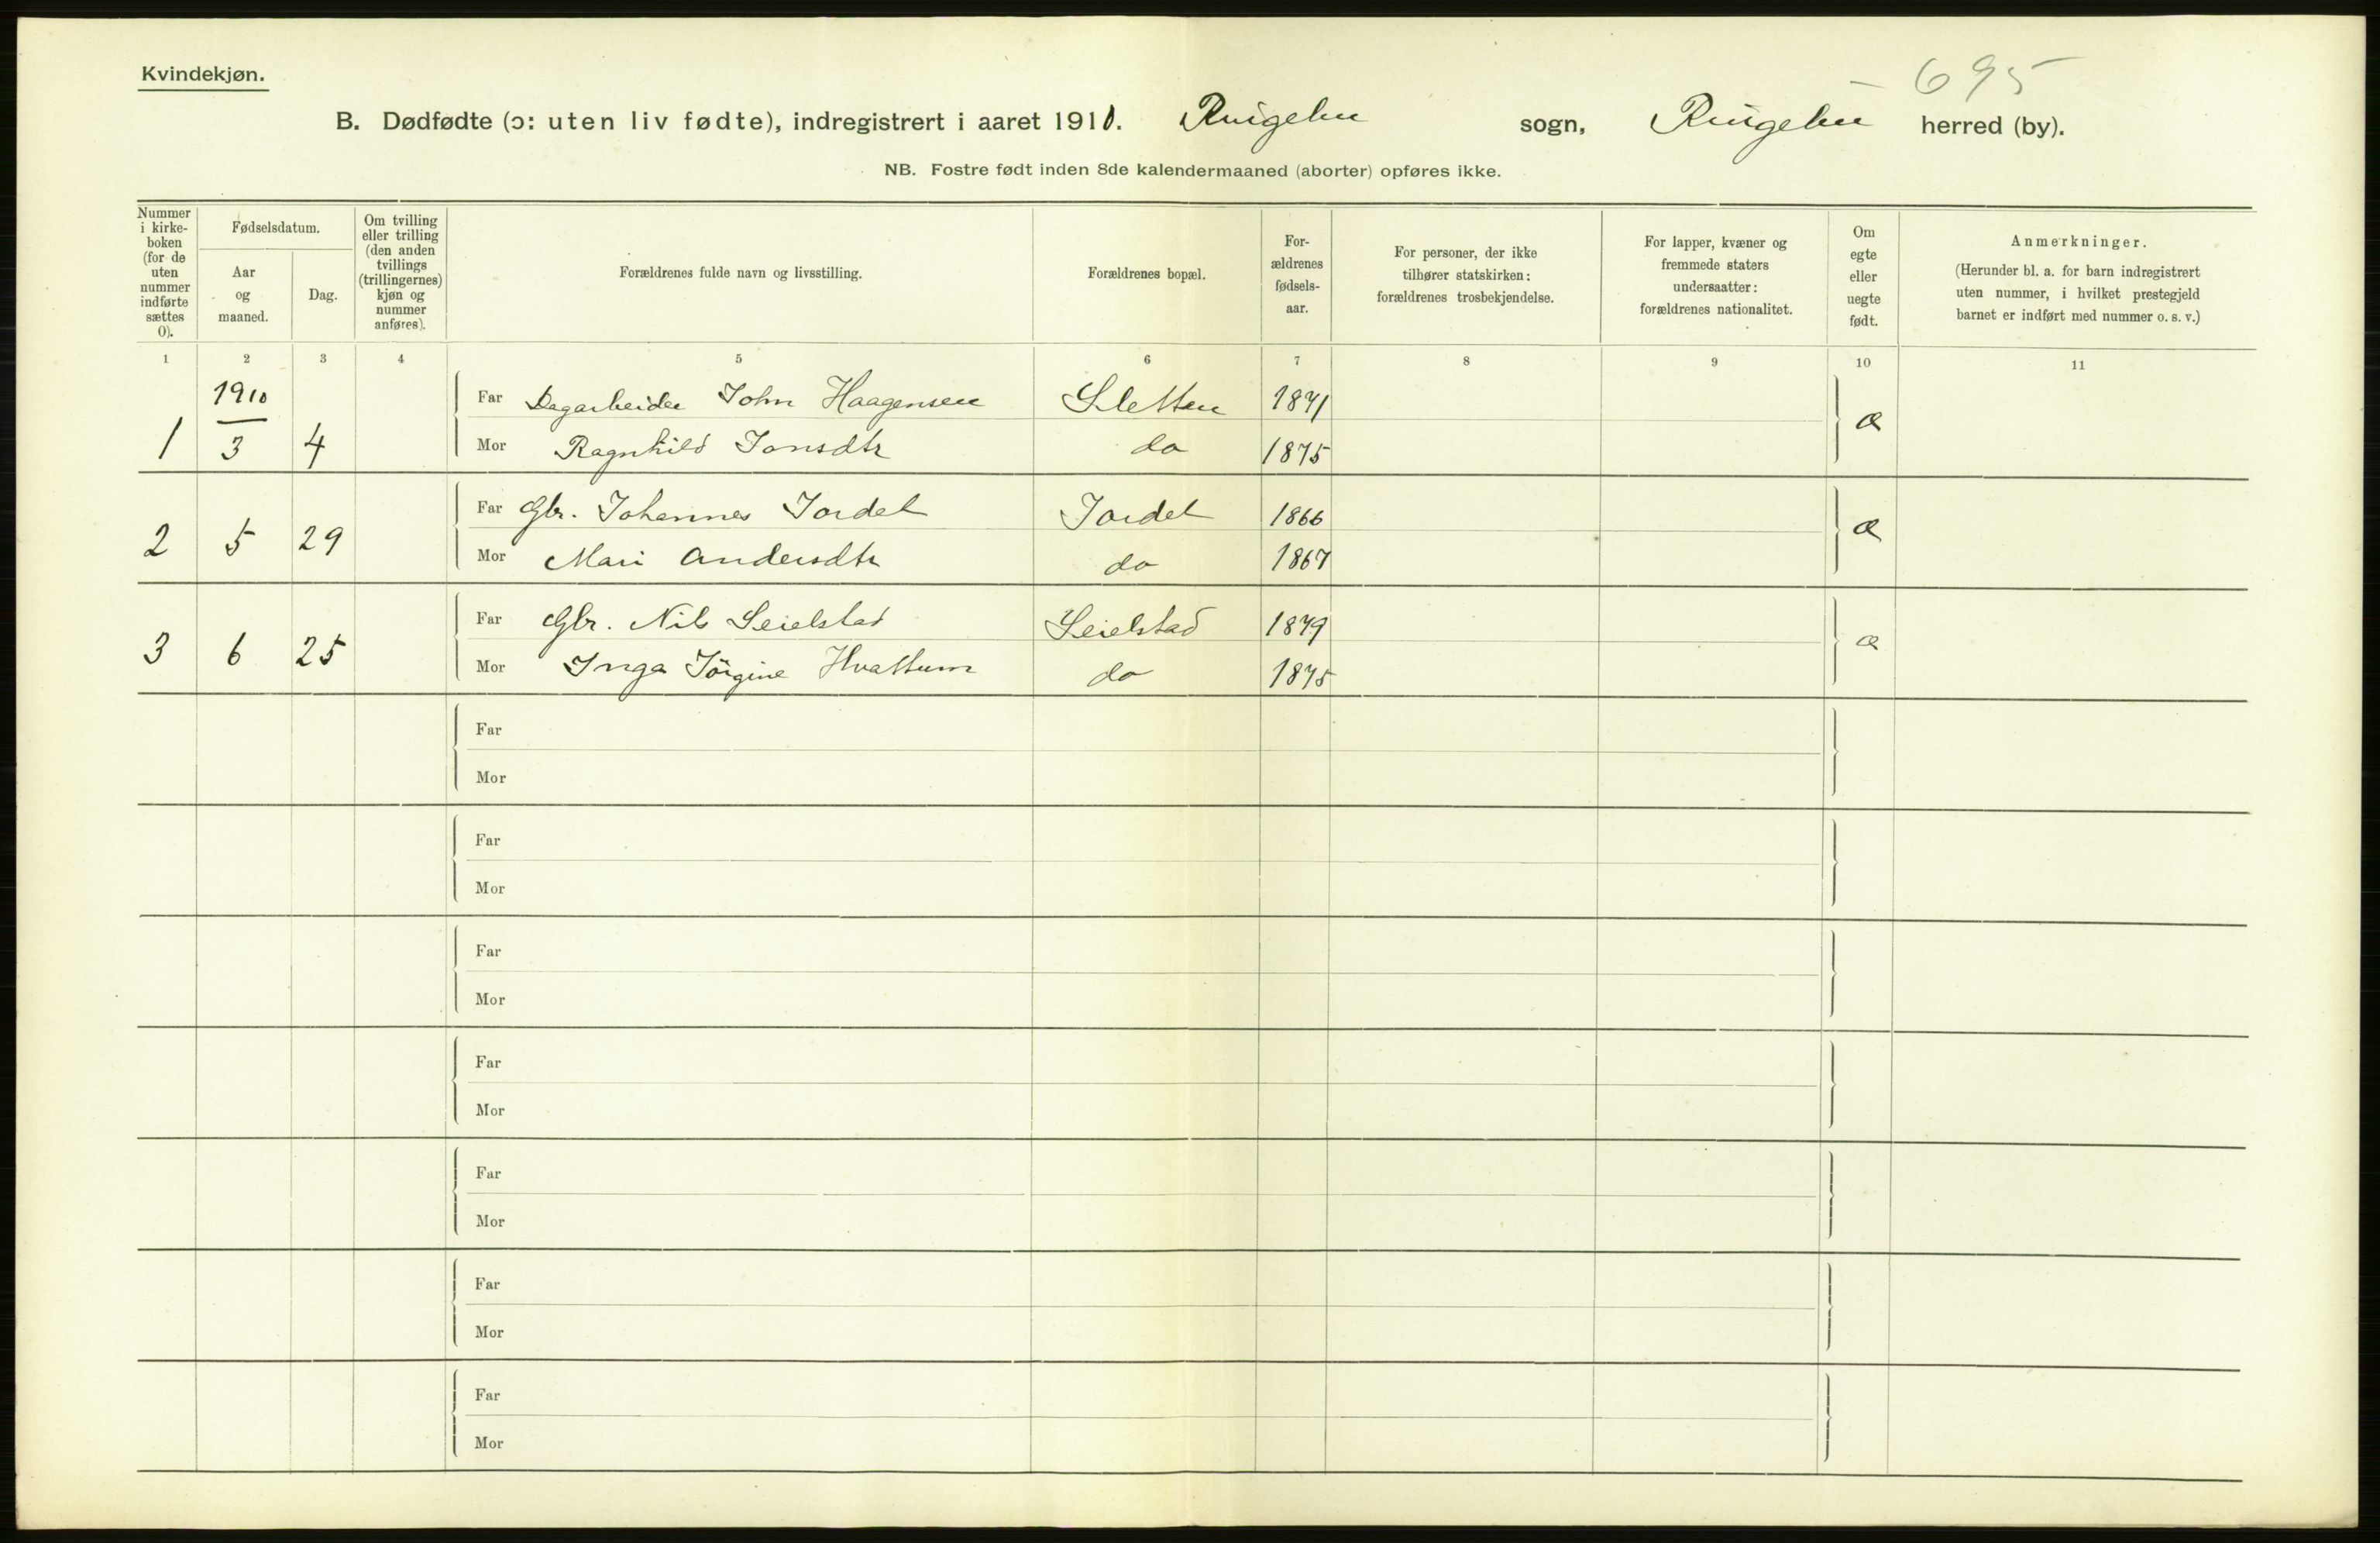 Kvindekjøn.
695
B. Dødfødte (ɔ: uten liv fødte), indregistrert i aaret 1910. Ringebu sogn, Ringebu herred (by).
NB. Fostre født inden 8de kalendermaaned (aborter) opføres ikke.
Nummer i kirke-boken (for de uten nummer indførte sættes 0).
Fødselsdatum.
Aar og maaned.
Dag.
Om tvilling eller trilling (den anden tvillings (trillingernes) kjøn og nummer anføres).
Forældrenes fulde navn og livsstilling.
Forældrenes bopæl.
For-ældrenes fødsels-aar.
For personer, der ikke tilhører statskirken: forældrenes trosbekjendelse.
For lapper, kvæner og fremmede staters undersaatter: forældrenes nationalitet.
Om egte eller uegte født.
Anmerkninger.
(Herunder bl. a. for barn indregistrert uten nummer, i hvilket prestegjeld barnet er indført med nummer o. s. v.)
1 2 3 4 5 6 7 8 9 10 11
1910
Far Dagarbeider John Haagensen Sletten 1871
1 3 4 æ
Mor Ragnhild Jonsdtr do 1875
Far Gbr. Johannes Jordet Jordet 1866
2 5 29 æ
Mor Mari Andersdtr do 1867
Far Gbr. Nils Seielstad Seielstad 1879
3 6 25 æ
Mor Inga Jörgine Hvattum do 1875
Far
Mor
Far
Mor
Far
Mor
Far
Mor
Far
Mor
Far
Mor
Far
Mor